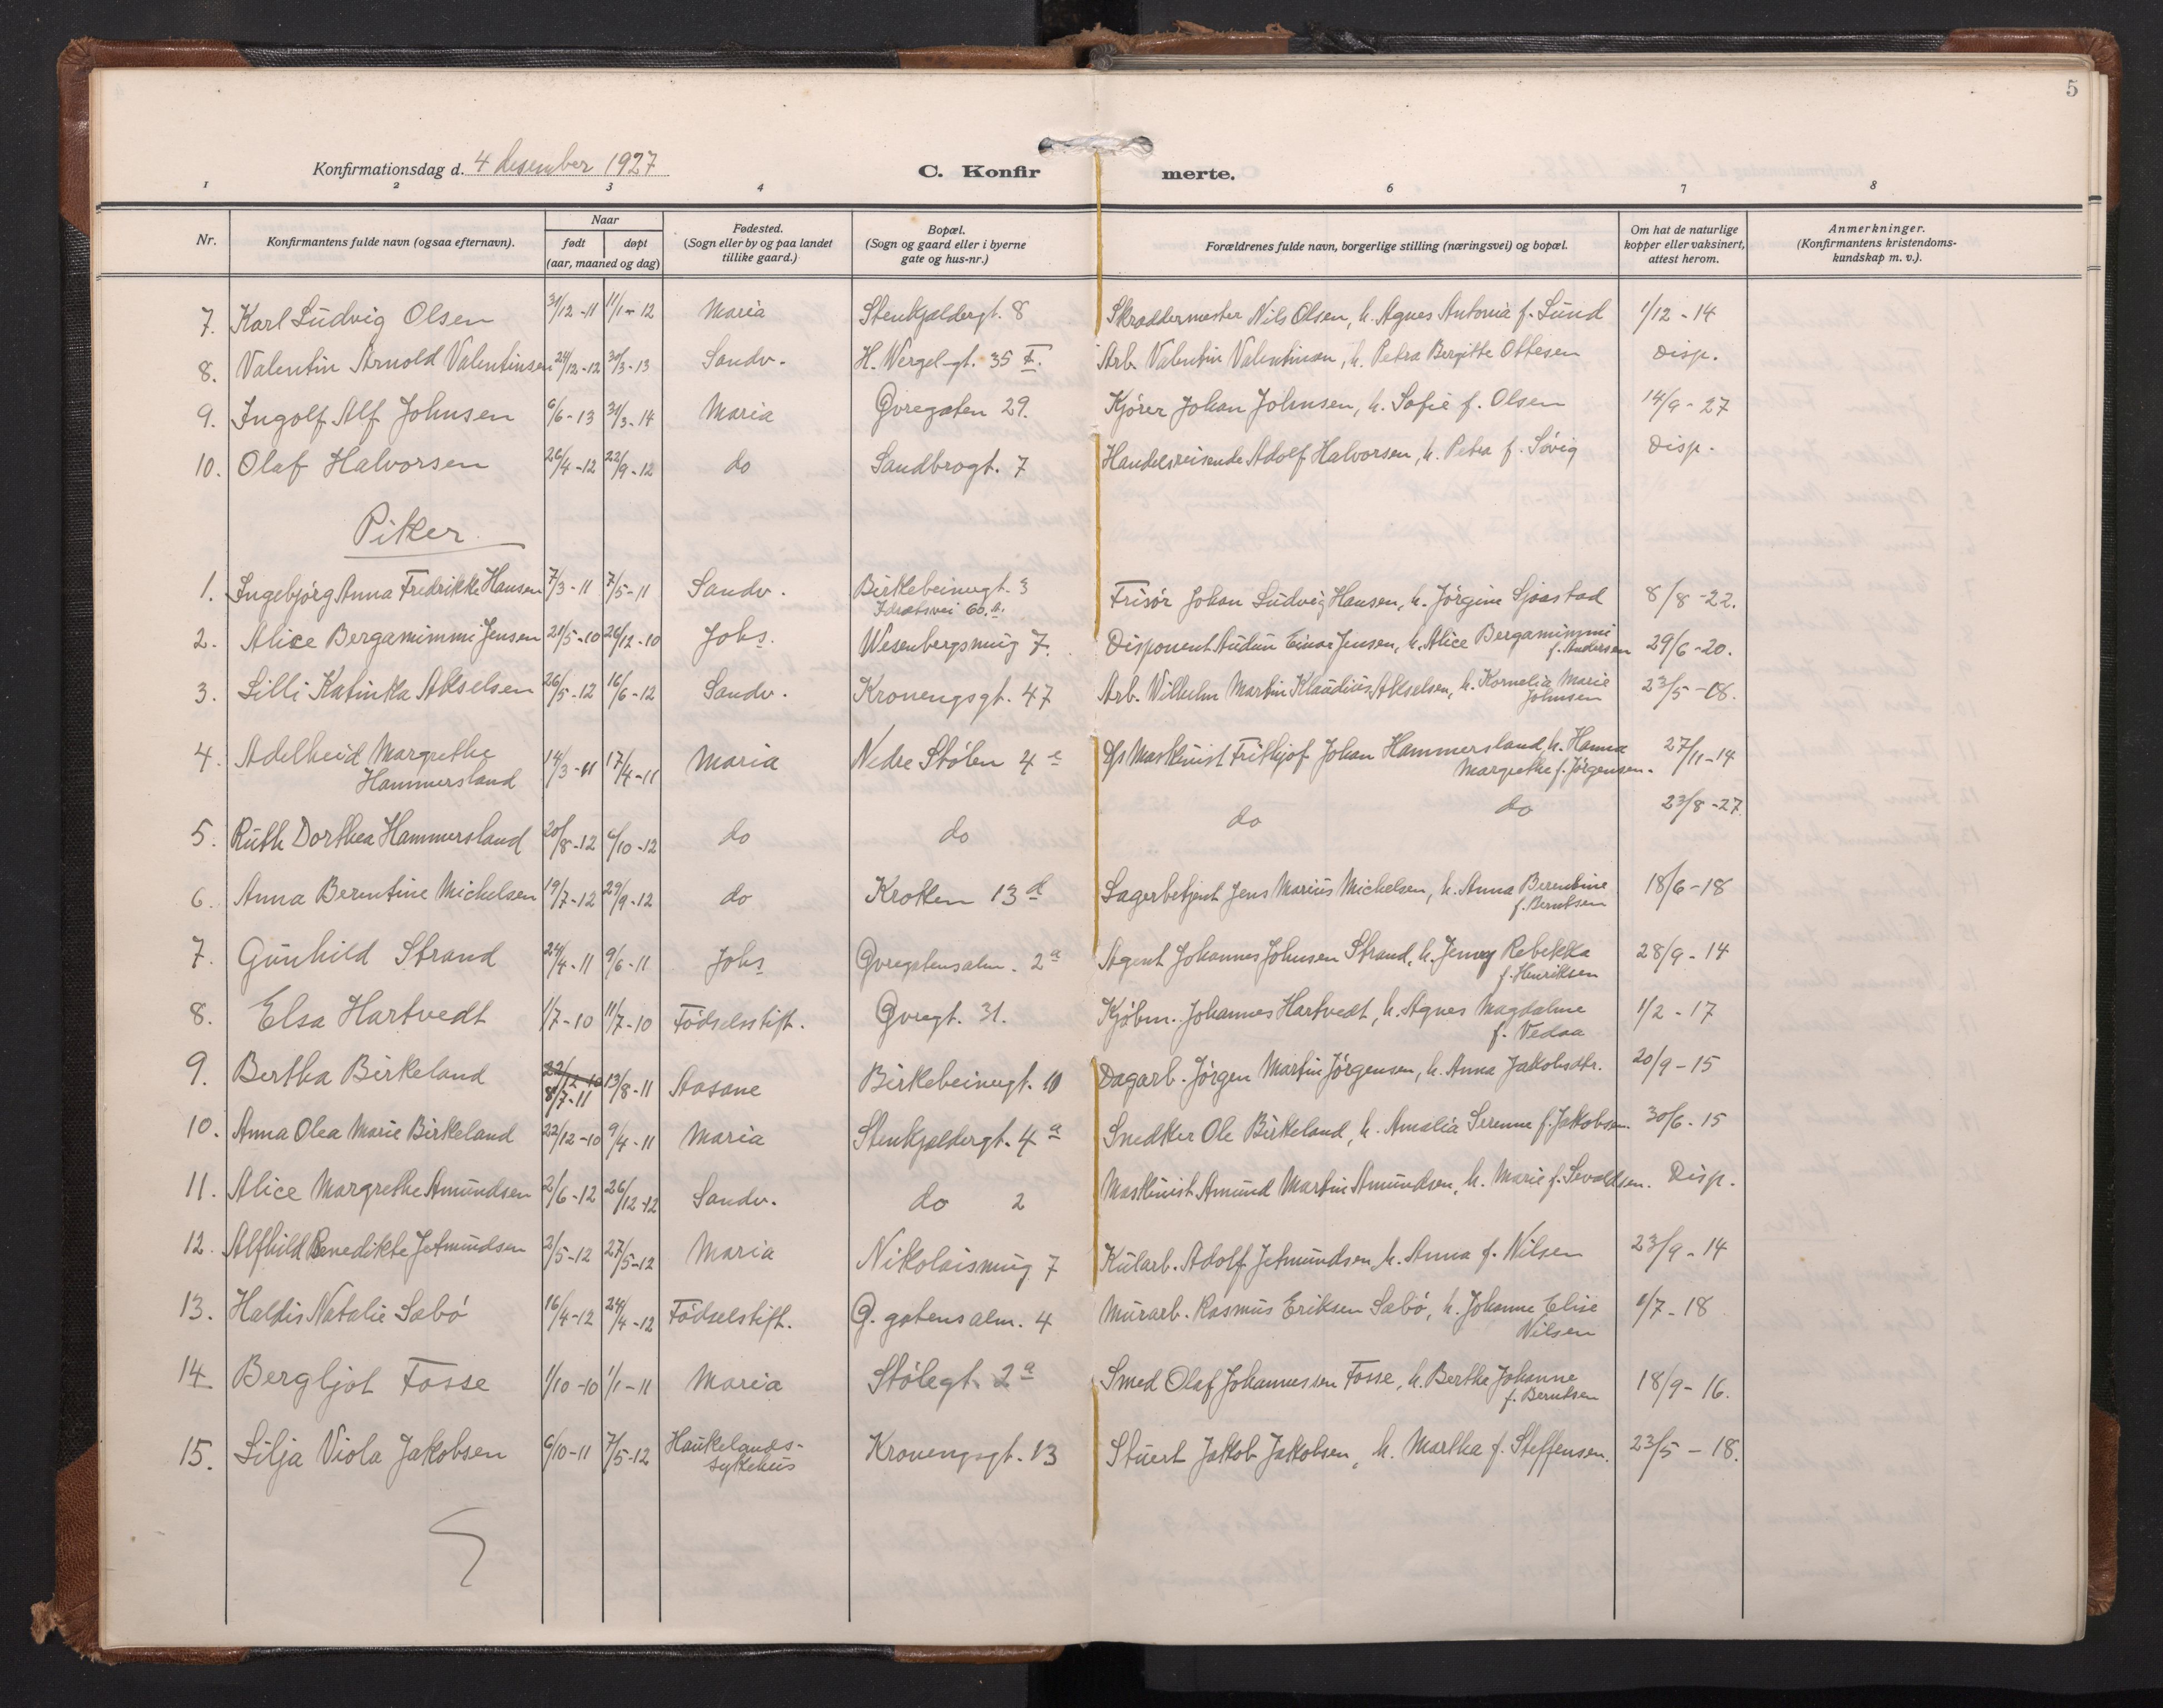 5
Konfirmationsdag d. 4 desember 1927
C. Konfirmerte.
1 2 3 4 6 7 8
Nr.
Konfirmantens fulde navn (ogsaa efternavn).
Naar
født døpt
(aar, maaned og dag)
Fødested.
(Sogn eller by og paa landet
tillike gaard.)
Bopæl.
(Sogn og gaard eller i byerne
gate og hus-nr.)
Forældrenes fulde navn, borgerlige stilling (næringsvei) og bopæl.
Om hat de naturlige
kopper eller vaksinert,
attest herom.
Anmerkninger.
(Konfirmantens kristendoms-
kundskap m. v.).
7. Karl Ludvig Olsen 31/12-11 11/1-12 Maria Stenkjeldergt. 8 Skræddermester Nils Olsen, h. Agnes Antonia f. Lund 1/12-14
8. Valentin Arnold Valentinsen 24/12-12 30/3-13 Sandv. H. Wergel.gt. 35 I. Arb. Valentin Valentinsen, h. Petra Bergitte Ottesen Disp.
9. Ingolf Alf Johnsen 6/6-13 31/3-14 Maria Øvregaten 29. Kjörer Johan Johnsen, h. Sofie f. Olsen 14/9-27
10. Olaf Halvorsen 26/4-12 22/9-12 do Sandbrogt. 7 Handelsreisende Adolf Halvorsen, h. Petra f. Sövig Disp.
Piker.
1. Ingebjörg Anna Fredrikke Hansen 7/3-11 7/5-11 Sandv. Birkebeinergt. 3 Frisör Johan Ludvig Hansen, h. Jörgine Sjaastad 8/8-22.
Idrætsvei 60.a.
2. Alice Bergamimmi Jensen 21/5-10 26/12-10 Johs. Wesenbergsmug 7. Disponent Audun Einar Jensen, h. Alice Bergamimmi
f. Andersen 29/6-20.
3. Lilli Katinka Akselsen 26/5-12 16/6-12 Sandv. Kronengsgt. 47 Arb. Wilhelm Martin Klaudius Akselsen, h. Kornelia Marie
Johnsen 23/5-08.
4. Adelheid Margrethe
Hammersland 14/3-11 17/4-11 Maria Nedre Stölen 4 e D/s Maskinist Frithjof Johan Hammersland, h. Hanna
Margrethe f. Jörgensen. 27/11-14
5. Ruth Dorthea Hammersland 20/8-12 6/10-12 do do do do 23/8-27
6. Anna Berentine Michelsen 19/7-12 29/9-12 do Krokken 13 d Lagerbetjent Jens Marius Michelsen, h. Anna Berentine
f. Berntsen 18/6-18
7. Gunhild Strand 24/4-11 9/6-11 Johs Øvregatensalm. 2 a Agent Johannes Johnsen Strand, h. Jenny Rebekka
f. Henriksen 28/9-14
8. Elsa Hartvedt 1/7-10 11/7-10 Födselsstift. Øvregt. 31. Kjöbm. Johannes Hartvedt, h. Agnes Magdalene
f. Vedaa 1/2-17
9. Bertha Birkeland 22/12-10
8/7-11 13/8-11 Aasane Birkebeinergt. 10 Dagarb. Jörgen Martin Jörgensen, h. Anna Jakobsdtr. 20/9-15
10. Anna Olea Marie Birkeland 22/12-10 9/4-11 Maria Stenkjeldergt. 4 a Snedker Ole Birkeland, h. Amalia Serenne f. Jakobsen. 30/6-15
11. Alice Margrethe Amundsen 2/6-12 26/12-12 Sandv. do 2 Maskinist Amund Martin Amundsen, h. Marie f. Sevaldsen. Disp.
12. Alfhild Benedikte Jetmundsen 2/5-12 27/5-12 Maria Nikolaismug 7 Kularb. Adolf Jetmundsen, h. Anna f. Nilsen 23/9-14
13. Haldis Natalie Sabö 16/4-12 24/4-12 Födselstift. Ø. gatens alm. 4 Murarb. Rasmus Eriksen Sabö, h. Johanne Elise
Nilsen 1/7-18
14 Bergljot Fosse 1/10-10 1/1-11 Maria Stölegt. 2 a Smed Olaf Johannessen Fosse, h. Berthe Johanne
f. Berntsen 18/9-16.
15. Silja Viola Jakobsen 6/10-11 7/5-12 Haukelands-
sykehus Kronengsgt. 13 Stuert Jakob Jakobsen, h. Martha f. Steffensen. 23/5-18.